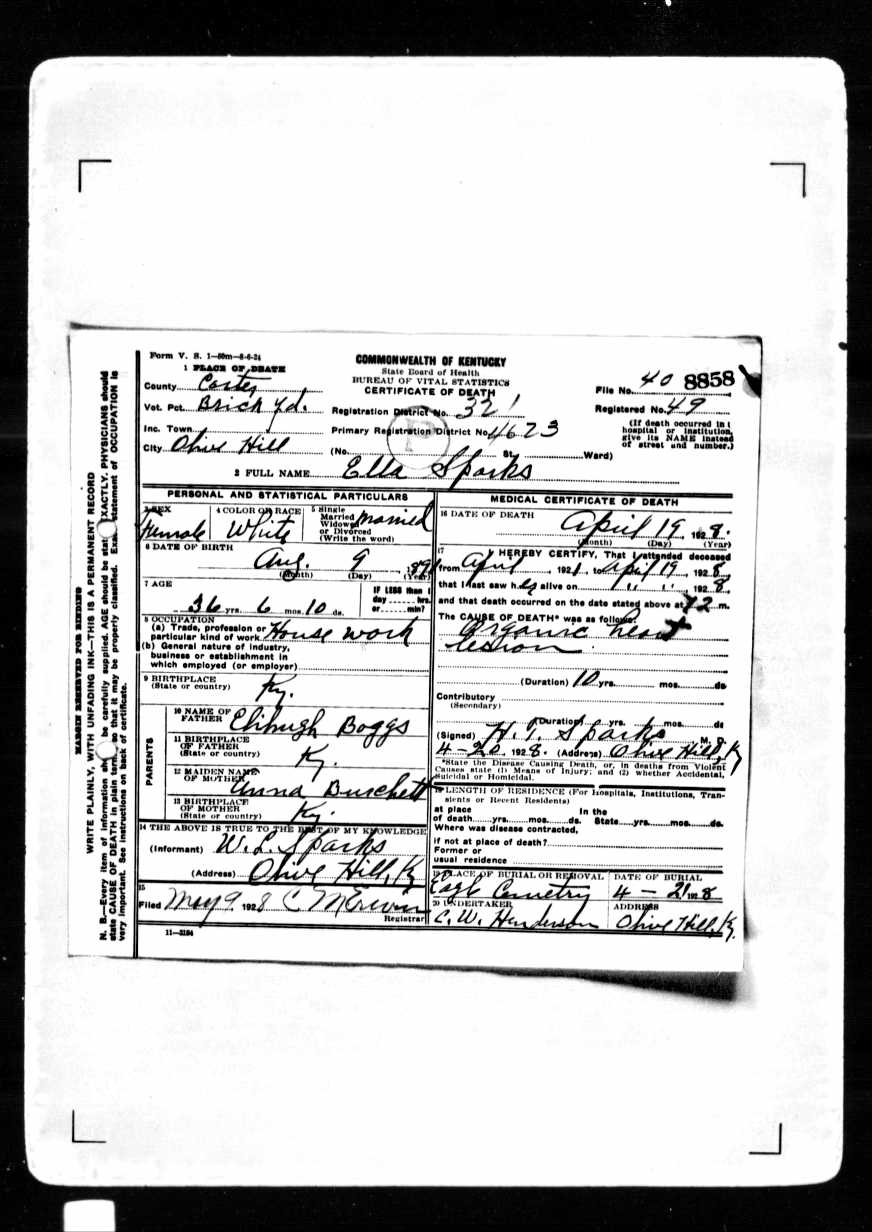 Form V. S. 1—50m—8-6-24
1 PLACE OF DEATH
COMMONWEALTH OF KENTUCKY
State Board of Health
BUREAU OF VITAL STATISTICS
CERTIFICATE OF DEATH
County Carter
File No. 40 8858
Vot. Pct. Brick Yd.
Registration District No. 321
Registered No. 49
Inc. Town
Primary Registration District No. 4623
(If death occurred in a hospital or institution, give its NAME instead of street and number.)
City Olive Hill
(No. St. Ward)
2 FULL NAME Ella Sparks
PERSONAL AND STATISTICAL PARTICULARS
3 SEX Female
4 COLOR OR RACE White
5 Single Married Widowed or Divorced (Write the word) Married
6 DATE OF BIRTH Aug. 9, 1891
(Month) (Day) (Year)
7 AGE
36 yrs. 6 mos. 10 ds.
IF LESS than 1 day hrs. or min?
8 OCCUPATION
(a) Trade, profession or particular kind of work House work
(b) General nature of industry,
business or establishment in
which employed (or employer)
9 BIRTHPLACE
(State or country) Ky.
PARENTS
10 NAME OF FATHER Elihugh Boggs
11 BIRTHPLACE OF FATHER
(State or country) Ky.
12 MAIDEN NAME OF MOTHER Anna Burchett
13 BIRTHPLACE OF MOTHER
(State or country) Ky.
14 THE ABOVE IS TRUE TO THE BEST OF MY KNOWLEDGE
(Informant) W. L. Sparks
(Address) Olive Hill, Ky
15
Filed May 9 1928 C M Erwin
Registrar
11—3184
MEDICAL CERTIFICATE OF DEATH
16 DATE OF DEATH April 19 1928.
(Month) (Day) (Year)
17 I HEREBY CERTIFY, That I attended deceased
from April, 1921, to April 19, 1928
that I last saw her alive on " ", 1928
and that death occurred on the date stated above at 12 m.
The CAUSE OF DEATH* was as follows:
Organic heart
lesion.
(Duration) 10 yrs. mos. ds
Contributory
(Secondary)
(Duration) yrs. mos. ds
(Signed) H. T. Sparks M. D.
4-20, 1928. (Address) Olive Hill, Ky
*State the Disease Causing Death, or, in deaths from Violent
Causes state (1) Means of Injury; and (2) whether Accidental,
Suicidal or Homicidal.
18 LENGTH OF RESIDENCE (For Hospitals, Institutions, Transients or Recent Residents)
at place In the
of death yrs. mos. ds. State yrs. mos. ds.
Where was disease contracted,
if not at place of death?
Former or
usual residence
19 PLACE OF BURIAL OR REMOVAL
DATE OF BURIAL
Cemetry 4 — 21 1928
20 UNDERTAKER
ADDRESS
C. W. Henderson Olive Hill, Ky.
MARGIN RESERVED FOR BINDING
WRITE PLAINLY, WITH UNFADING INK—THIS IS A PERMANENT RECORD
N. B.—Every item of information be carefully supplied. AGE should be EXACTLY. PHYSICIANS should
state CAUSE OF DEATH in plain so that it may be properly classified. statement of OCCUPATION is
very important. See instructions on back of certificate.